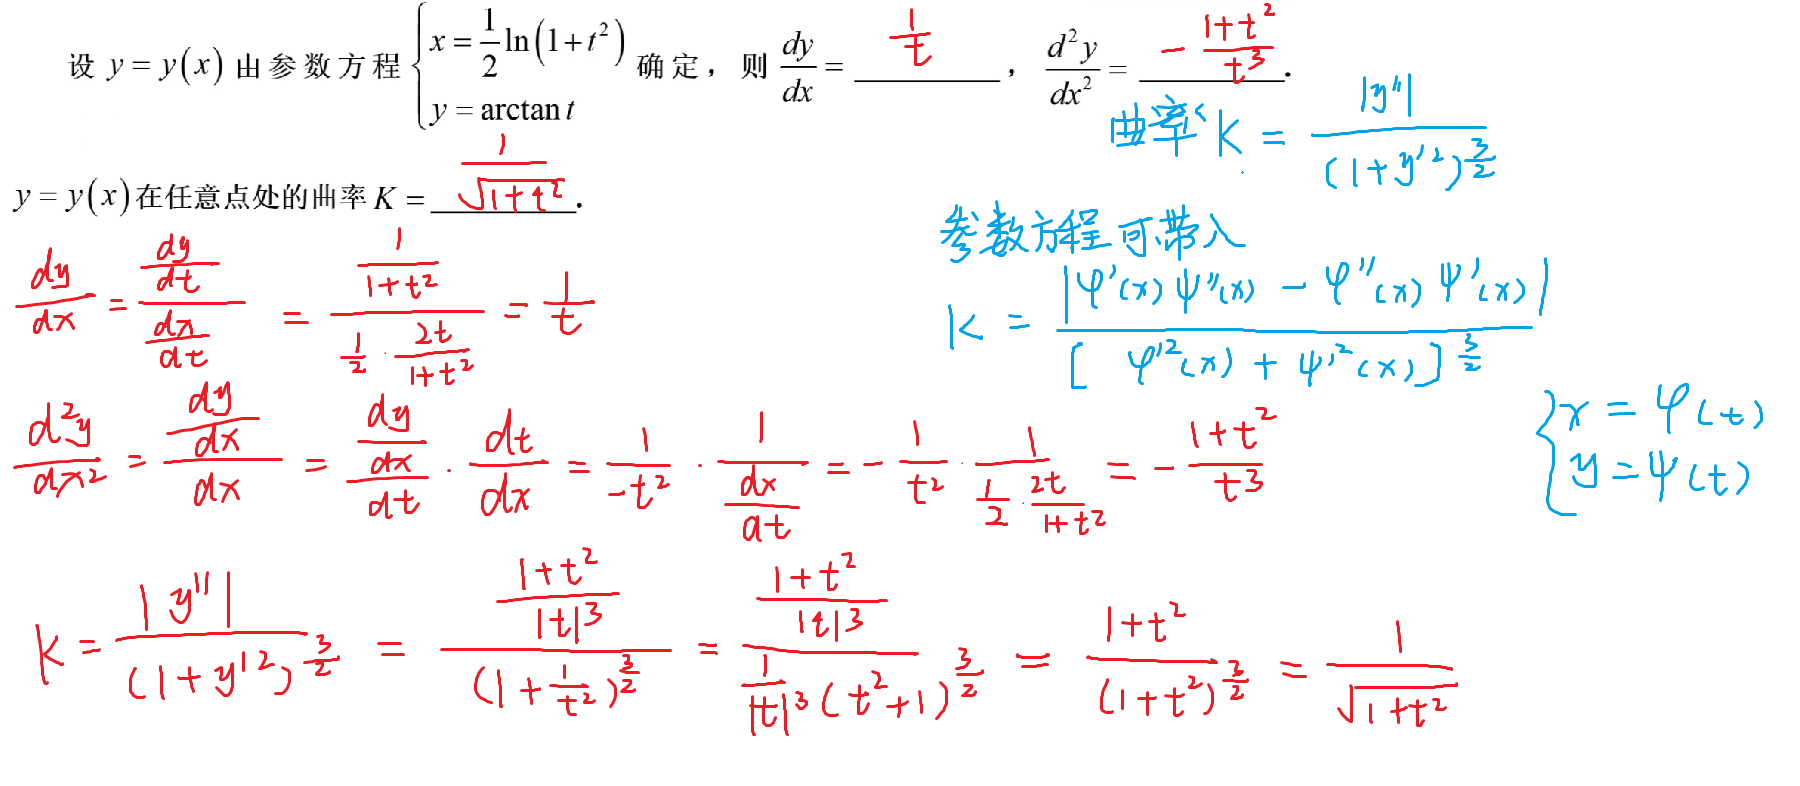 设 y = y(x) 由参数方程 { x = 1/2 ln(1+t²) 确定，则 dy/dx = 1/t ， d²y/dx² = - (1+t²)/t³ .
y = arctan t
曲率 K = |y''| / (1+y'²)^(3/2)
y = y(x) 在任意点处的曲率 K = 1/√(1+t²) .
参数方程可带入
K = |φ'(x)ψ''(x) - φ''(x)ψ'(x)| / [φ'²(x) + ψ'²(x)]^(3/2)
{ x = φ(t)
y = ψ(t)
dy/dx = (dy/dt)/(dx/dt) = (1/(1+t²)) / (1/2 · 2t/(1+t²)) = 1/t
d²y/dx² = (dy/dx)/dx = (dy/dx)/dt · dt/dx = 1/-t² · 1/(dx/dt) = - 1/t² · 1/(1/2 · 2t/(1+t²)) = - (1+t²)/t³
K = |y''| / (1+y'²)^(3/2) = ((1+t²)/|t|³) / (1+1/t²)^(3/2) = ((1+t²)/|t|³) / (1/|t|³ (t²+1)^(3/2)) = (1+t²)/(1+t²)^(3/2) = 1/√(1+t²)